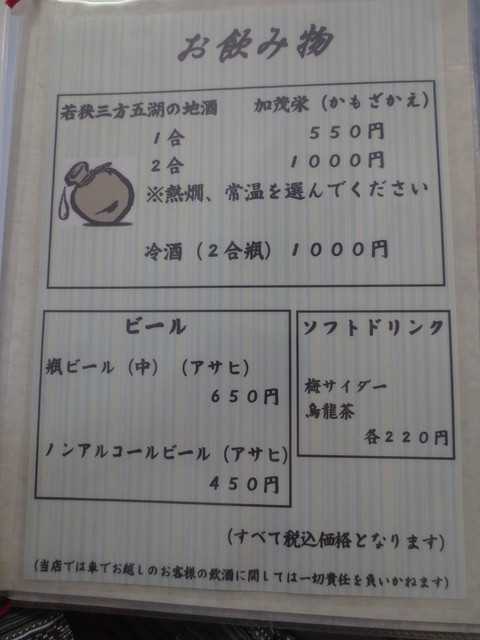 お飲み物
若狭三方五湖の地酒　加茂栄（かもざかえ）
１合　５５０円
２合　１０００円
※熱燗、常温を選んでください
冷酒（２合瓶）１０００円
ビール
瓶ビール（中）（アサヒ）
６５０円
ノンアルコールビール（アサヒ）
４５０円
ソフトドリンク
梅サイダー
烏龍茶
各２２０円
（すべて税込価格となります）
（当店では車でお越しのお客様の飲酒に関しては一切責任を負いかねます）